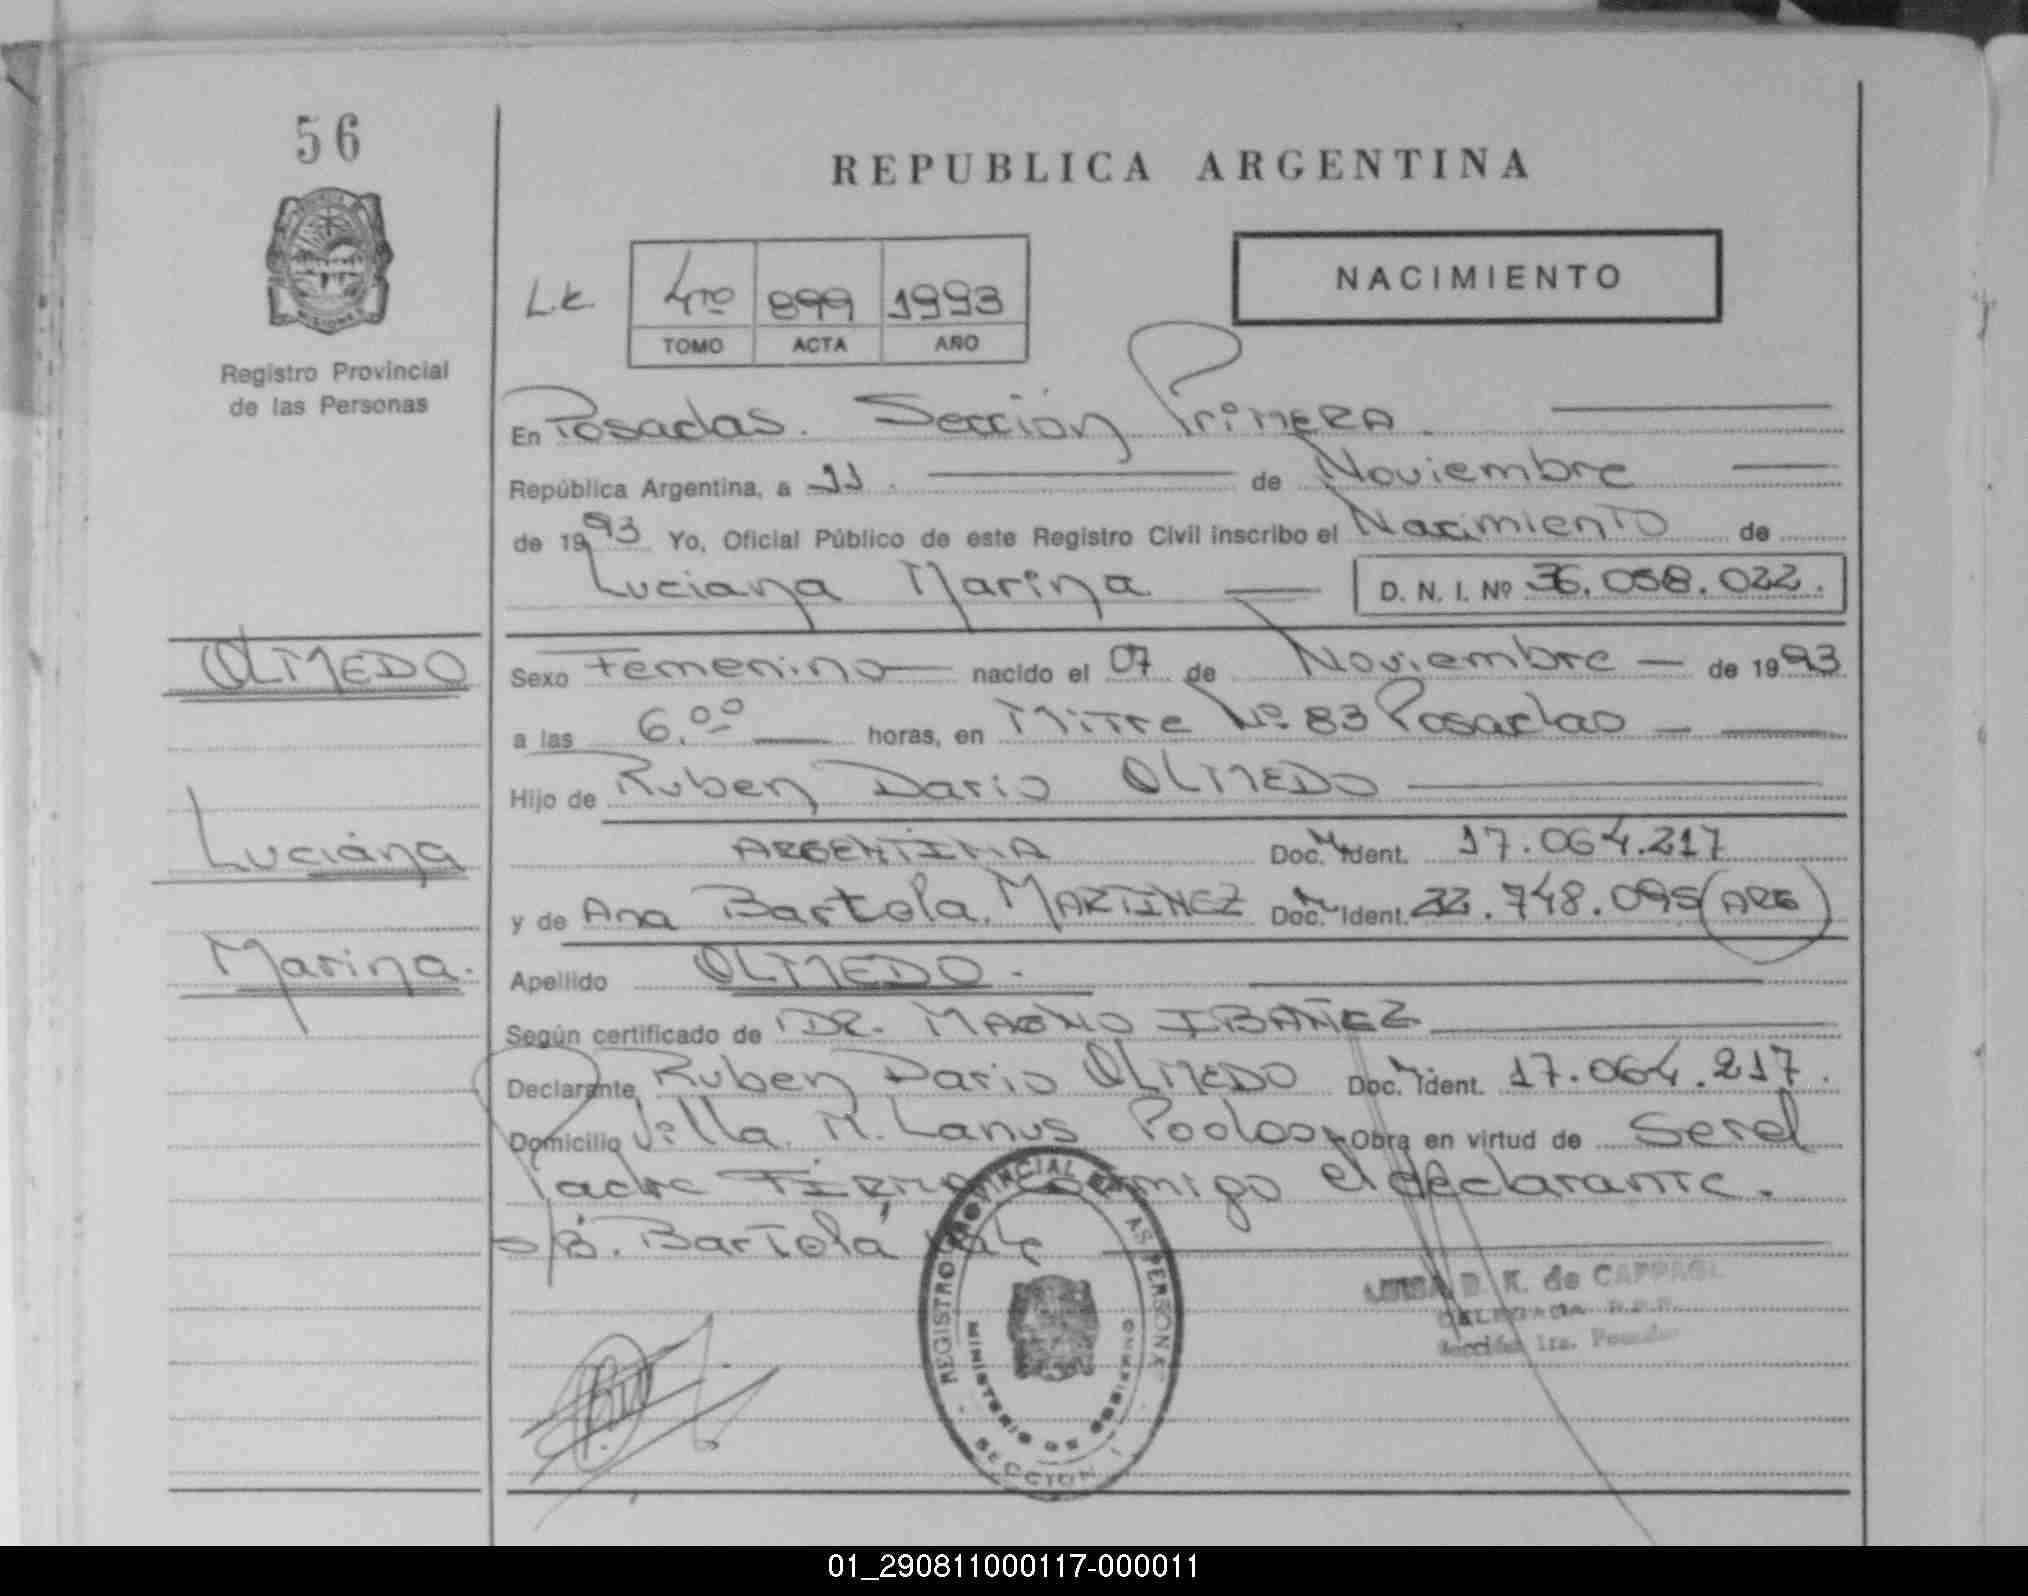 56
REPUBLICA ARGENTINA
NACIMIENTO
4to 899 1993
TOMO ACTA AÑO
Registro Provincial
de las Personas
En Posadas. Sección Primera
República Argentina, a 11. de Noviembre
de 1993 Yo, Oficial Público de este Registro Civil inscribo el Nacimiento de
Luciana Marina D. N. I. Nº 36.058.022.
OLMEDO
Luciana
Marina.
Sexo Femenino nacido el 07 de Noviembre de 1993
a las 6.00 horas, en Mitre Nº 83 Posadas
Hijo de Ruben Dario OLMEDO
ARGENTINA Doc. Ident. 17.064.217
y de Ana Bartola MARTINEZ Doc. Ident. 22.748.095 (ARG)
Apellido OLMEDO.
Según certificado de DR. MAGNO IBAÑEZ
Declarante Ruben Dario OLMEDO Doc. Ident. 17.064.217.
Domicilio Villa Lanus Obra en virtud de Ser el
Padre Firma conmigo el declarante.
Bartola Vale
REGISTRO PROVINCIAL DE LAS PERSONAS
MINISTERIO DE GOBIERNO
SECCION 1
de
DELEGADA
Sección 1ra. Posadas
01_290811000117-000011